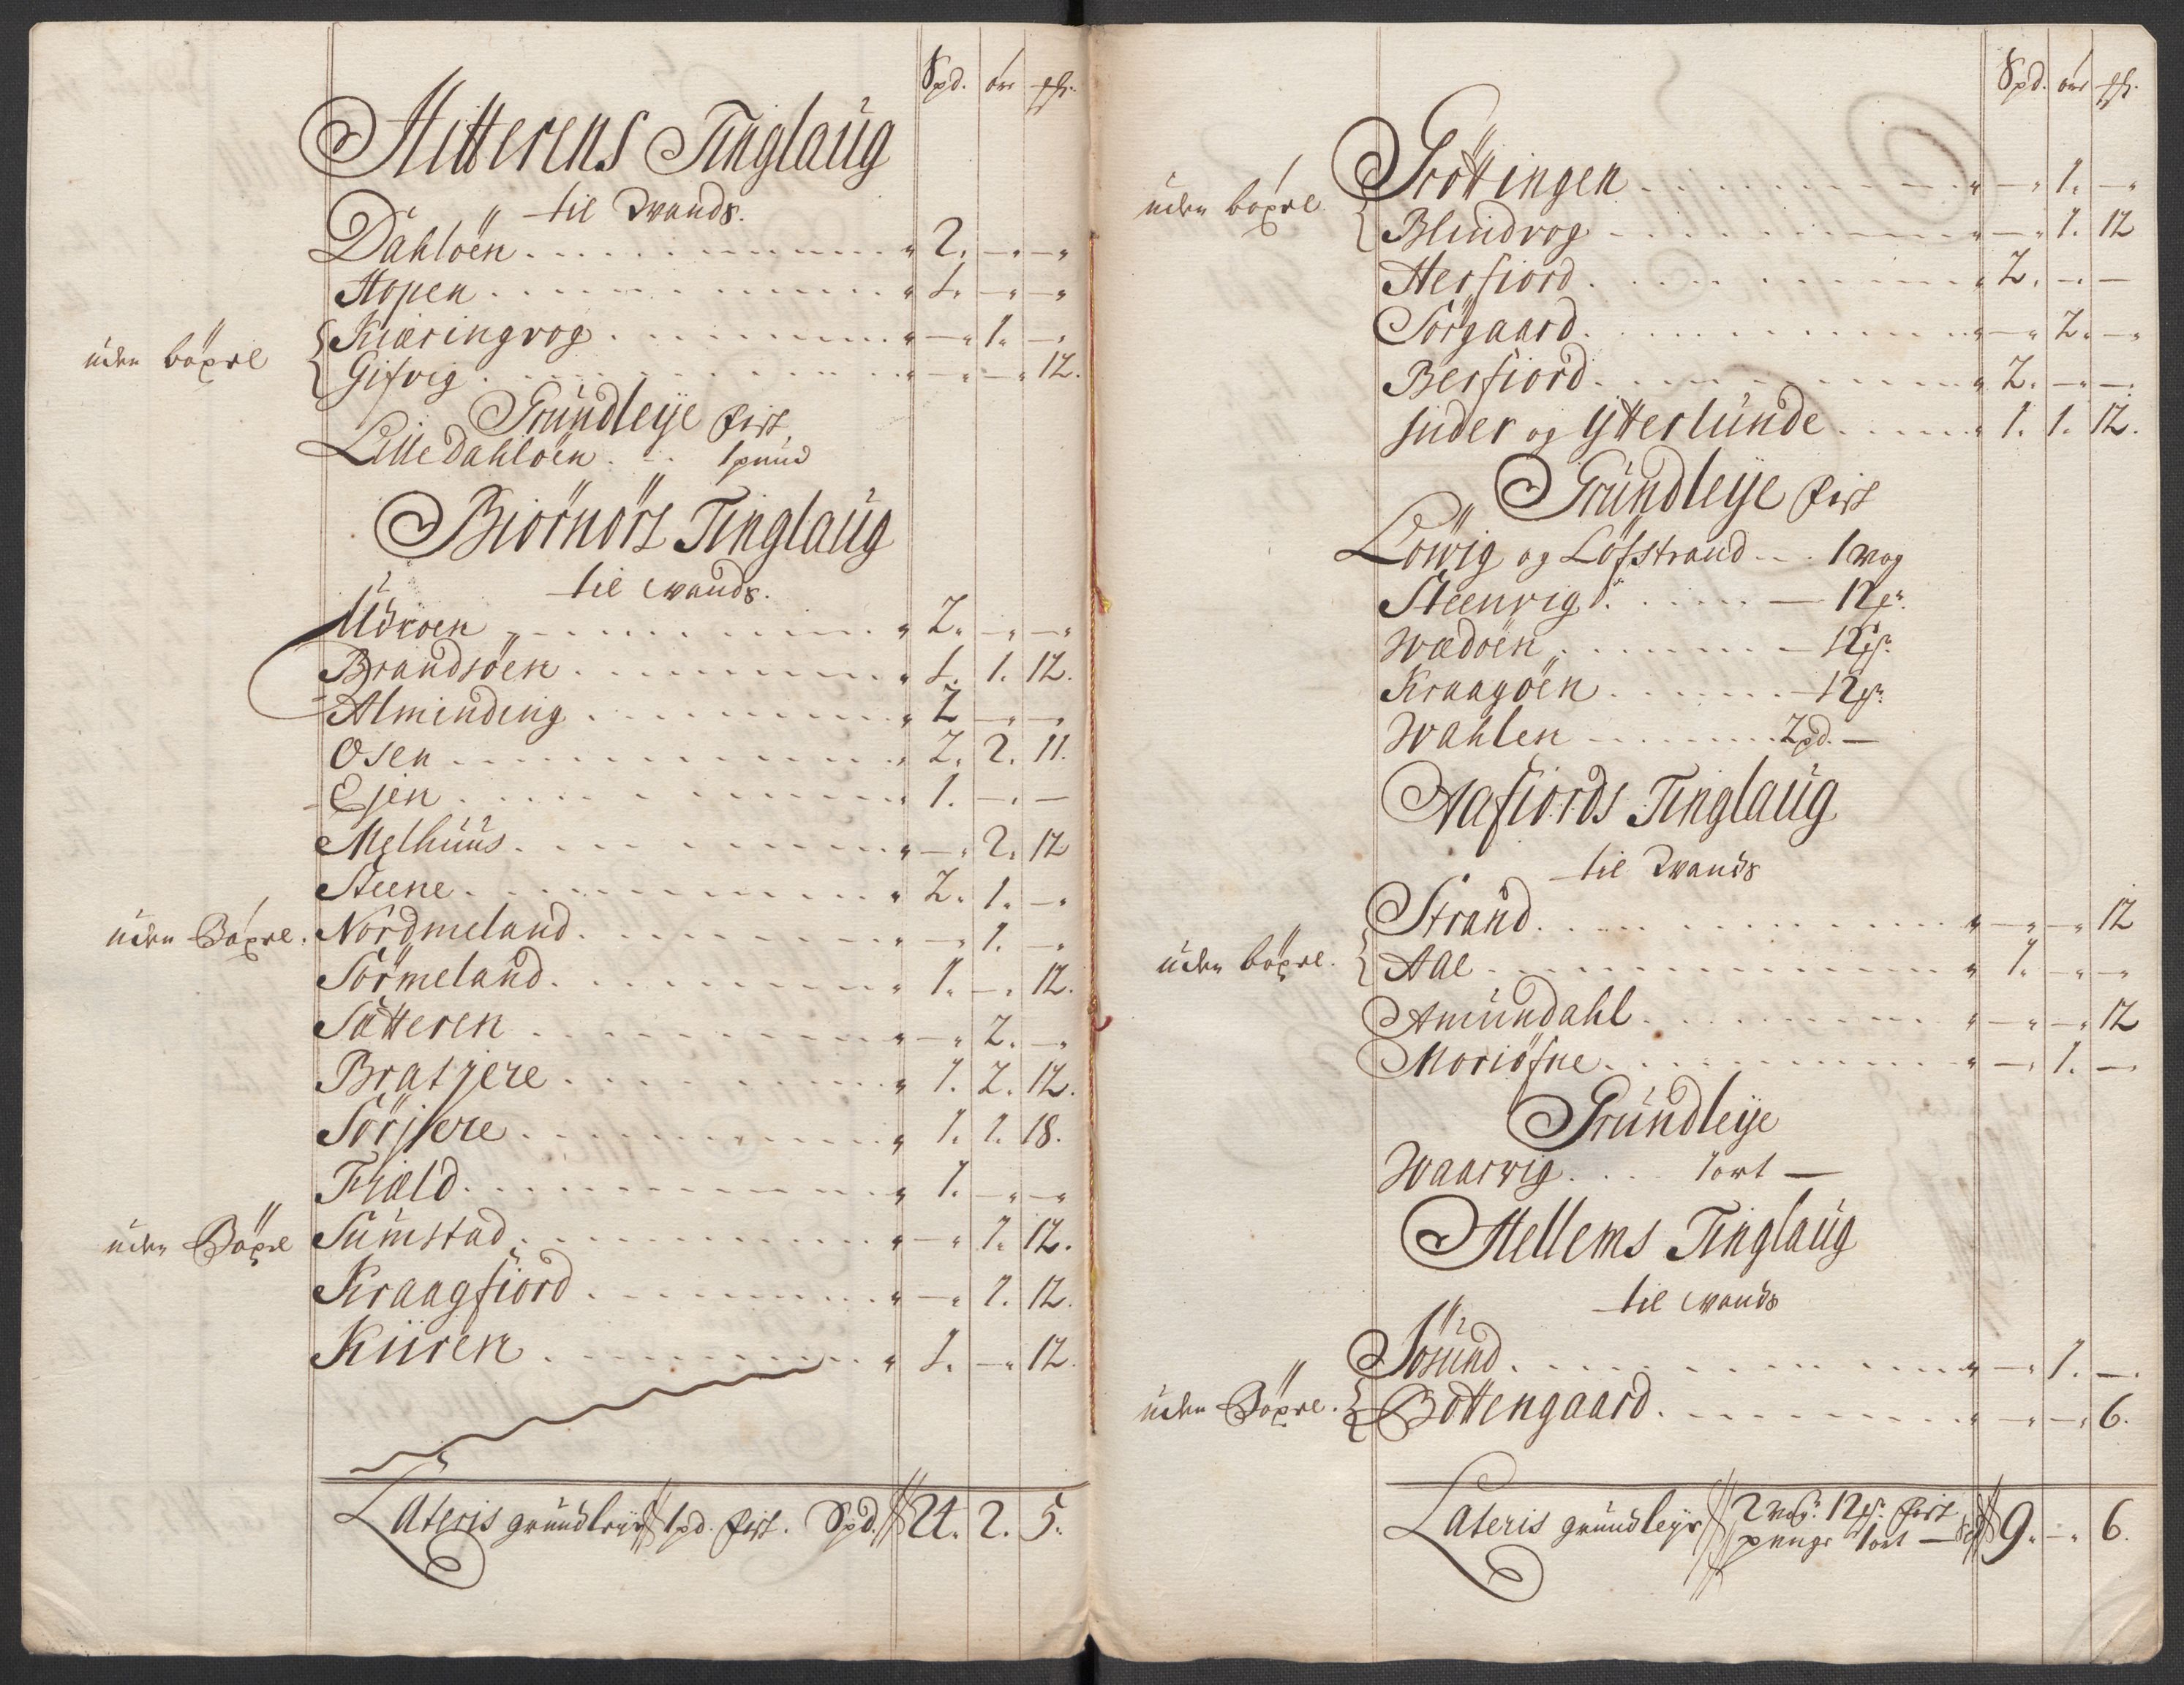 Spd. ör
Hitterens Tinglaug
til Lands.
Dahlöen 2. - -
Hopen 1. - -
uden böxel
Kiæringvog - 1. -
Gifvig - - 12.
Grundleÿe fisk
Lille Dahlöen 1 pund
Biörnörs Tinglaug
til Lands.
Udröen 2. - -
Brandsöen 1. 1. 12.
Alminding 2 - -
Osen 2. 2. 11.
Ejen 1. - -
Melhuus - 2. 12
Steene 2. 1. -
uden Böxel. Nordmeland - 1. -
Sörmeland 1. - 12.
Sætteren - 2. -
Bratjere 1. 2. 12.
Sörjere 1. 1. 18.
Fiæld 1. - -
uden Böxel Sumstad - 1. 12.
Kraagfiord - 1. 12.
Kiiren 1. - 12.
Lateris grundleje 1 pd. fisk. Spd. 21. 2. 5.
Spd. ör
Gröttingen - 1. -
uden böxel
Blindvog - 1. 12
Herfiord 2. - -
Sörgaard - 2. -
Berfiord 2. - -
Inder og Ytterlunde 1. 1. 12.
Grundleÿe fisk
Löwig og Löfstrand 1 vog
Steenvig 12
Wædöen 12
Kraagöen 12
Wahlen 2 pd. -
Aafiords Tinglaug
til Lands
Strand - - 12
uden böxel.
Aae 1. - -
Amundahl - - 12
Moriöfne - 1. -
Grundleÿe
Waarvig 1 ort -
Hellems Tinglaug
til Lands
Sösund - 1. -
uden Böxel.
Bottengaard - - 6.
Lateris grundleje 2 vog: 12 fisk
penge 1 ort - 9. - 6.